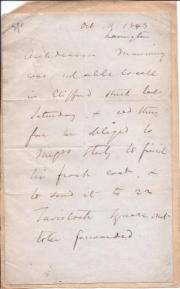 Oct 9 1843
Lavington
Archdeacon Manning
was not able to call
in Clifford Street last
Saturday & wd therefore
be obliged to
Messrs to finish
his frock coat, &
to send it to 22
Tavistock Square, not
to be forwarded.